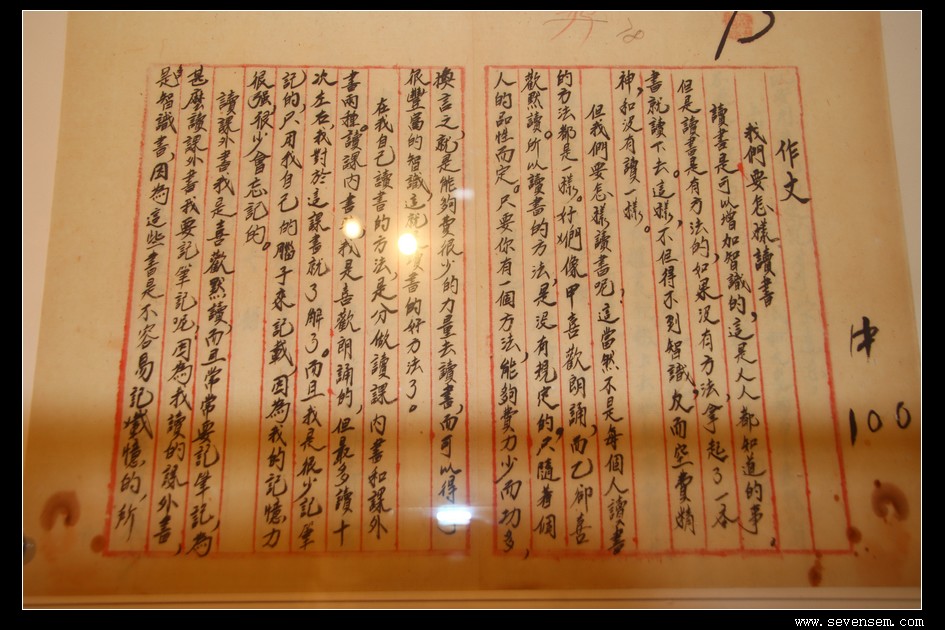 作文
我們要怎樣讀書
讀書是可以增加智識的,這是人人都知道的事。
但是讀書是有方法的,如果沒有方法,拿起了一本
書就讀下去。這樣,不但得不到智識,反而空費精
神,和沒有讀一樣。
但我們要怎樣讀書呢?這當然不是每個人讀書
的方法都是一樣。好們像甲喜歡朗誦,而乙卻喜
歡默讀。所以讀書的方法,是沒有規定的,只隨著個
人的品性而定。只要你有一個方法,能夠費力少而功多,
換言之,就是能夠費很少的力量去讀書,而可以得
很豐富的智識,這就書的好方法了。
在我自己讀書的方法,是分做讀課內書和課外
書兩種。讀課內書我是喜歡朗誦的,但最多讀十
次左右,我對於這課書就了解了。而且我是很少記筆
記的,只用我自己的腦子來記載,因為我的記憶力
很強,很少會忘記的。
讀課外書,我是喜歡默讀,而且常常要記筆記,為
甚麼讀課外書我要記筆記呢,因為我讀的課外書,
是智識書,因為這些書是不容易記憶的,所
中
100
www.sevensem.com